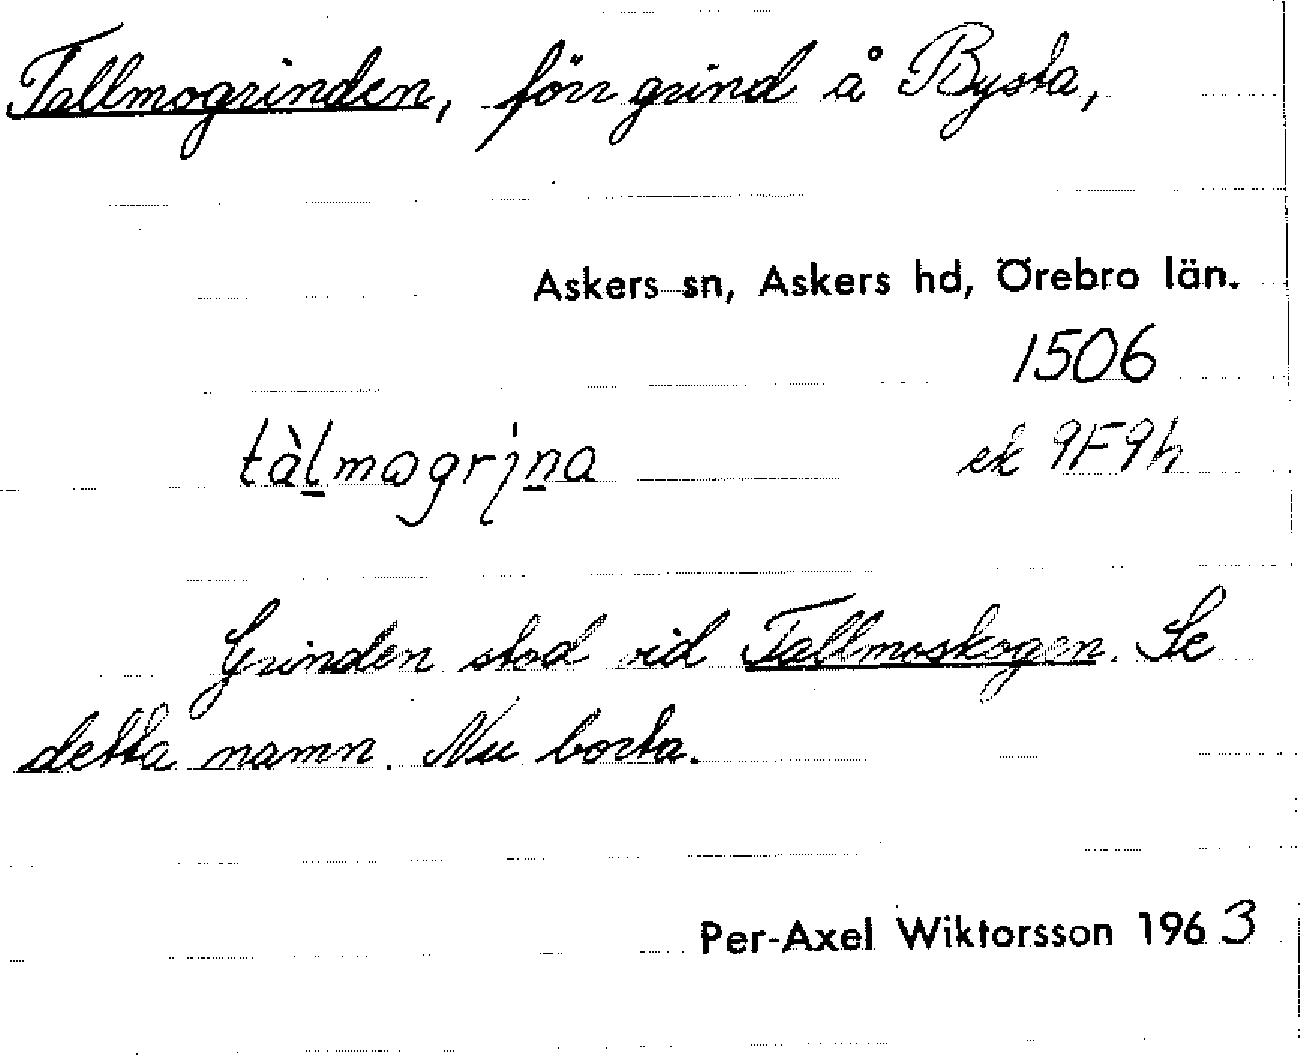 Tallmogrinden, förr grind å Bysta,
Askers sn, Askers hd, Örebro län.
1506
tàl̠mωgrı̨n̠a ek 9F9h
Grinden stod vid Tallmoskogen. Se
detta namn. Nu borta.
Per-Axel Wiktorsson 1963